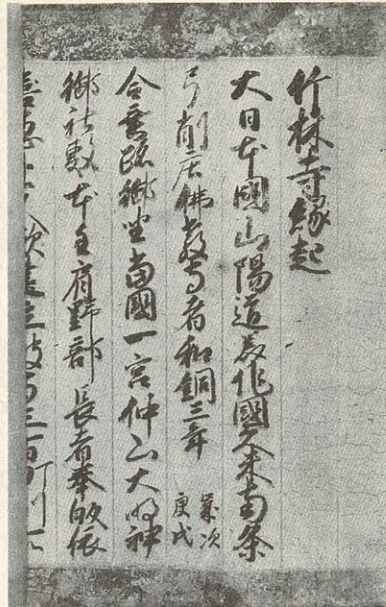 竹林寺縁起
大日本國山陽道美作國久米南条
弓削庄佛教寺者和銅三年歳次庚戌
合垂跡御坐當國一宮仲山大明神
御社敷本主有野部長者奉皈依